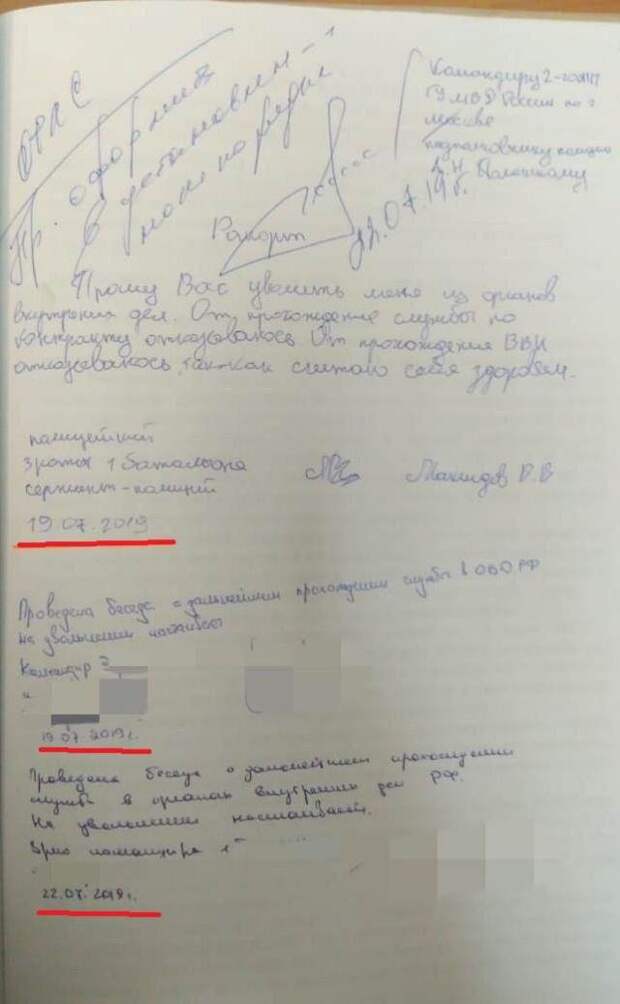 ОРЛС
Пр. оформить
в установлен-
ном порядке
Командиру 2-го
ГУ МВД России по г.
Москве
подполковнику полиции
22.07.19г.
Рапорт
Прошу Вас уволить меня из органов
внутрених дел. От прохождение службы по
контракту отказываюсь. От прохождения ВВК
отказываюсь, так как считаю себя здоровым.
полицейский
3 роты 1 батальона
сержант полиции
19.07.2019
Проведена беседа о дальнейшем прохождении службы в ОВД РФ
на увольнении настаивает
Командир
19.07.2019г.
Проведена беседа о дальнейшем прохождении
службы в органах внутренних дел РФ.
На увольнении настаивает.
Врио командира 1
22.07.2019г.